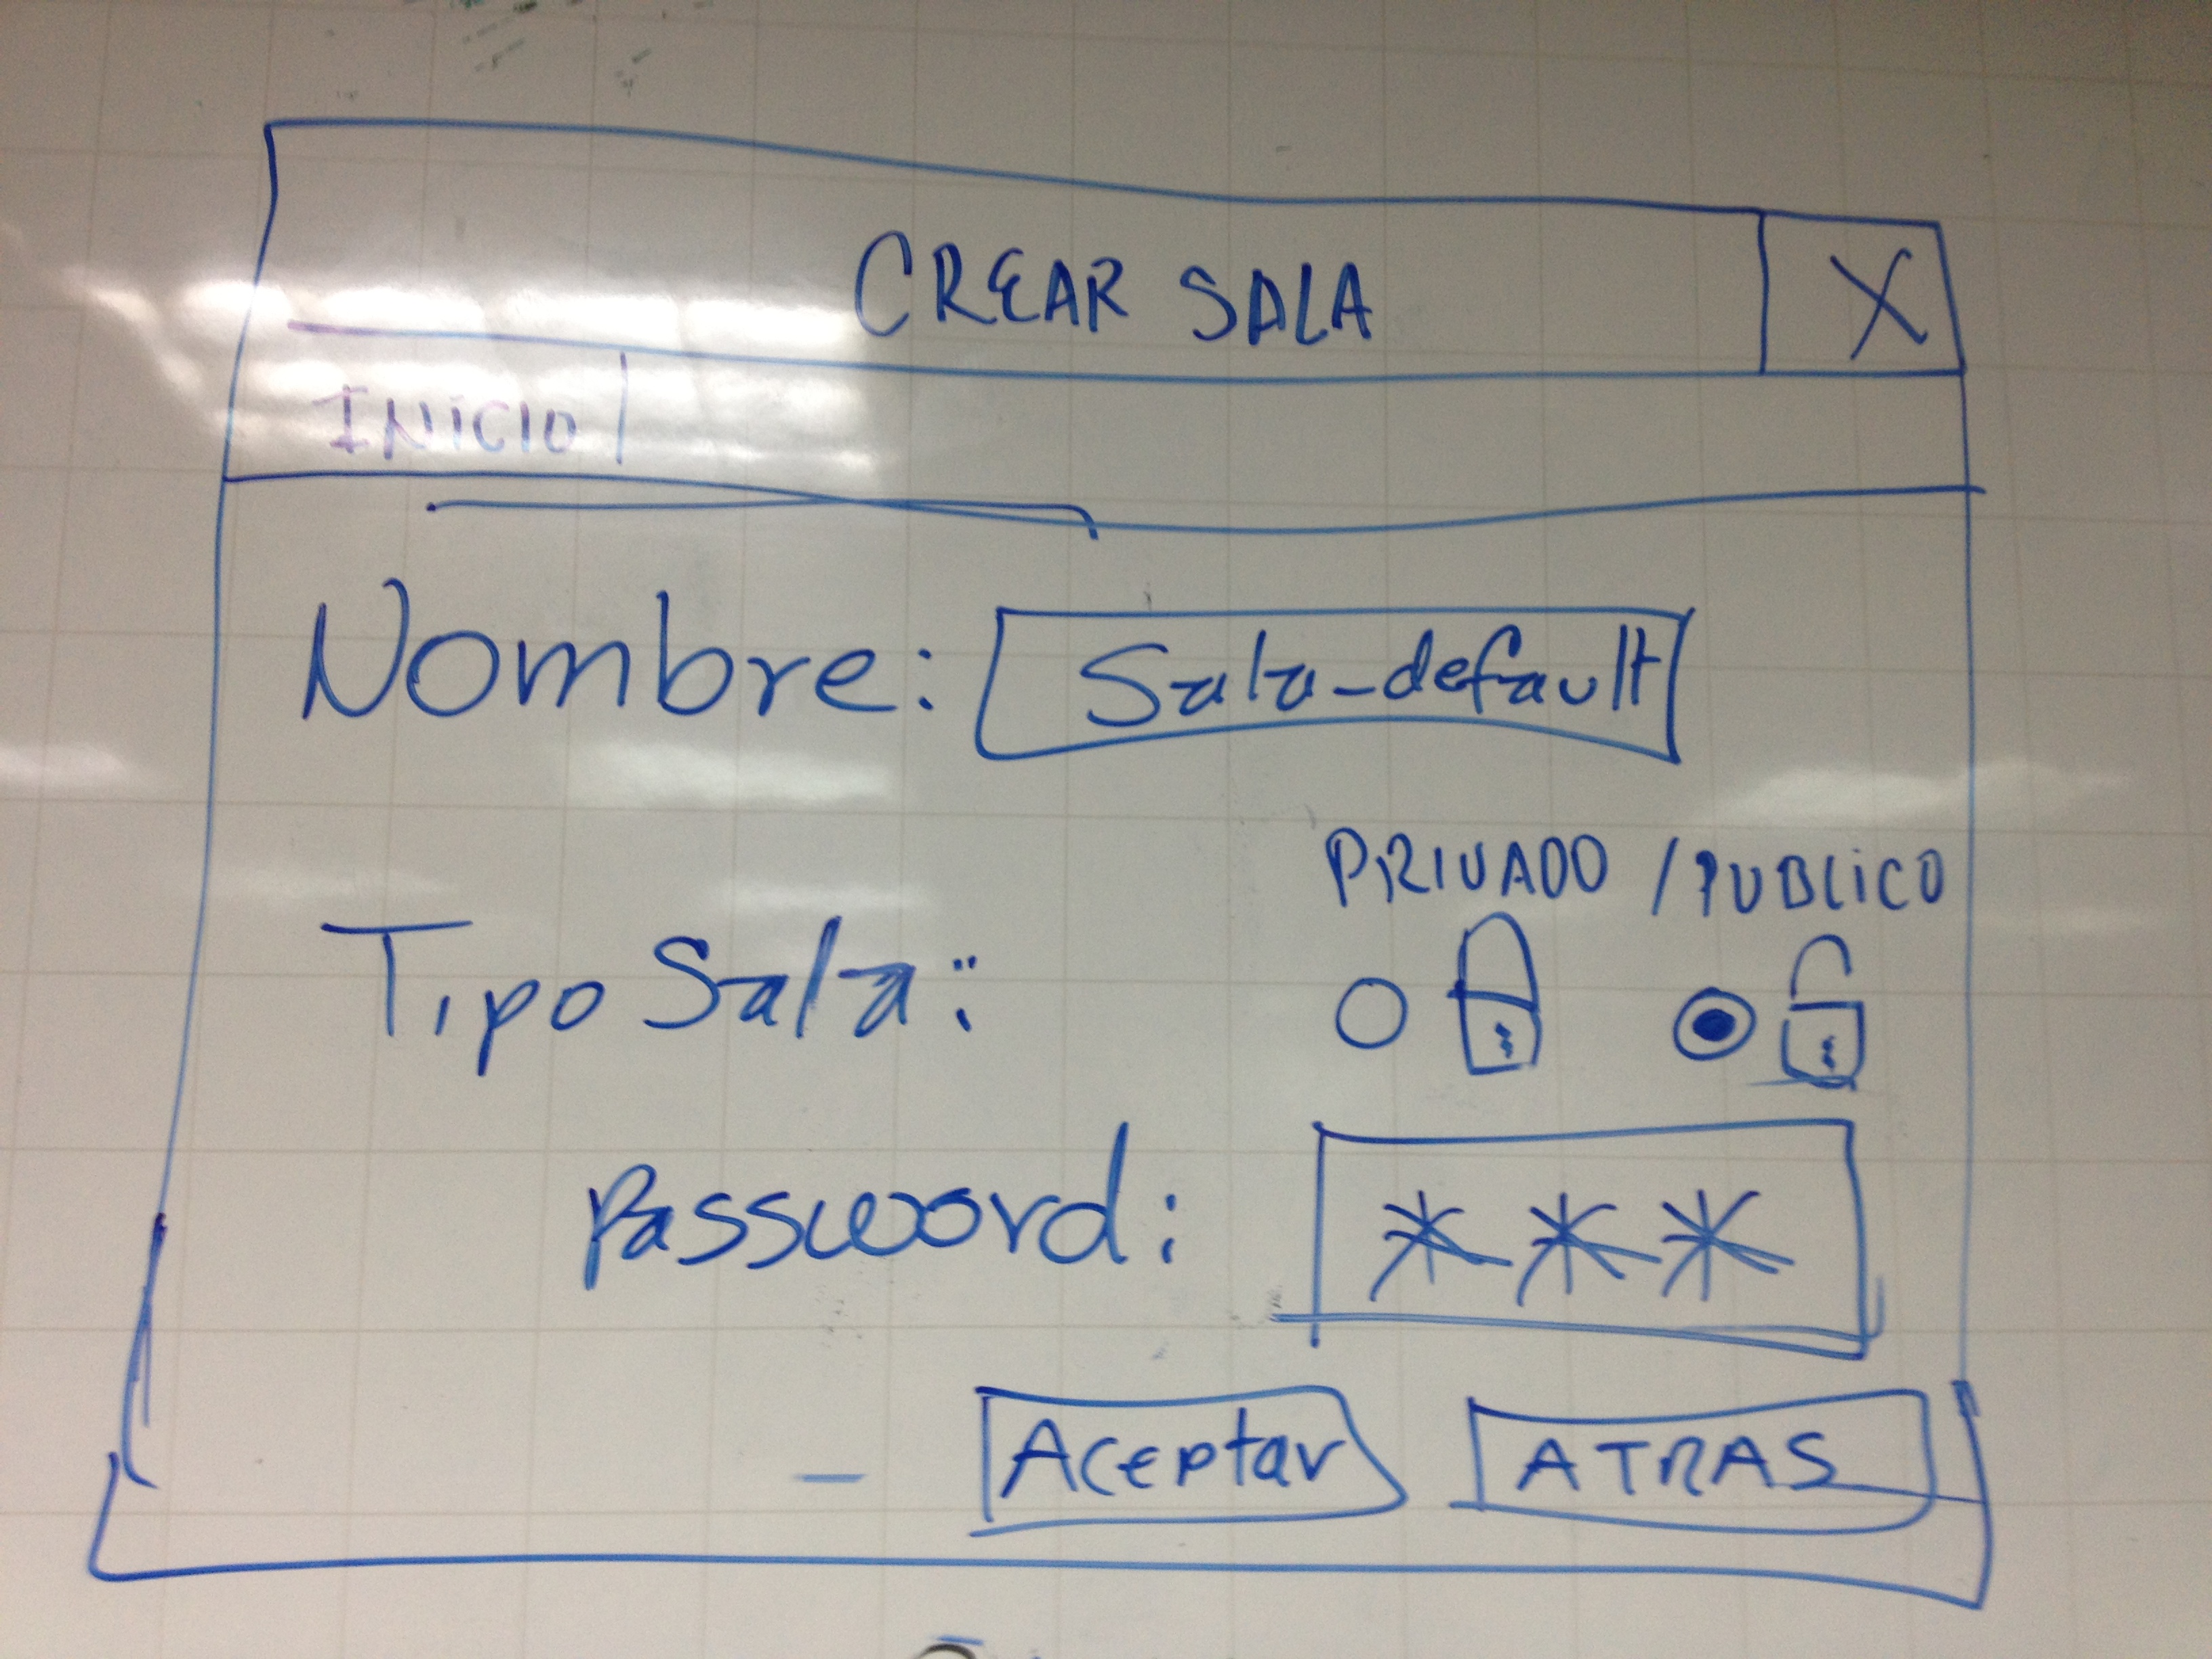 CREAR SALA X
INICIO
Nombre: Sala_default
PRIVADO / PUBLICO
Tipo Sala:
Password: ***
Aceptar ATRAS